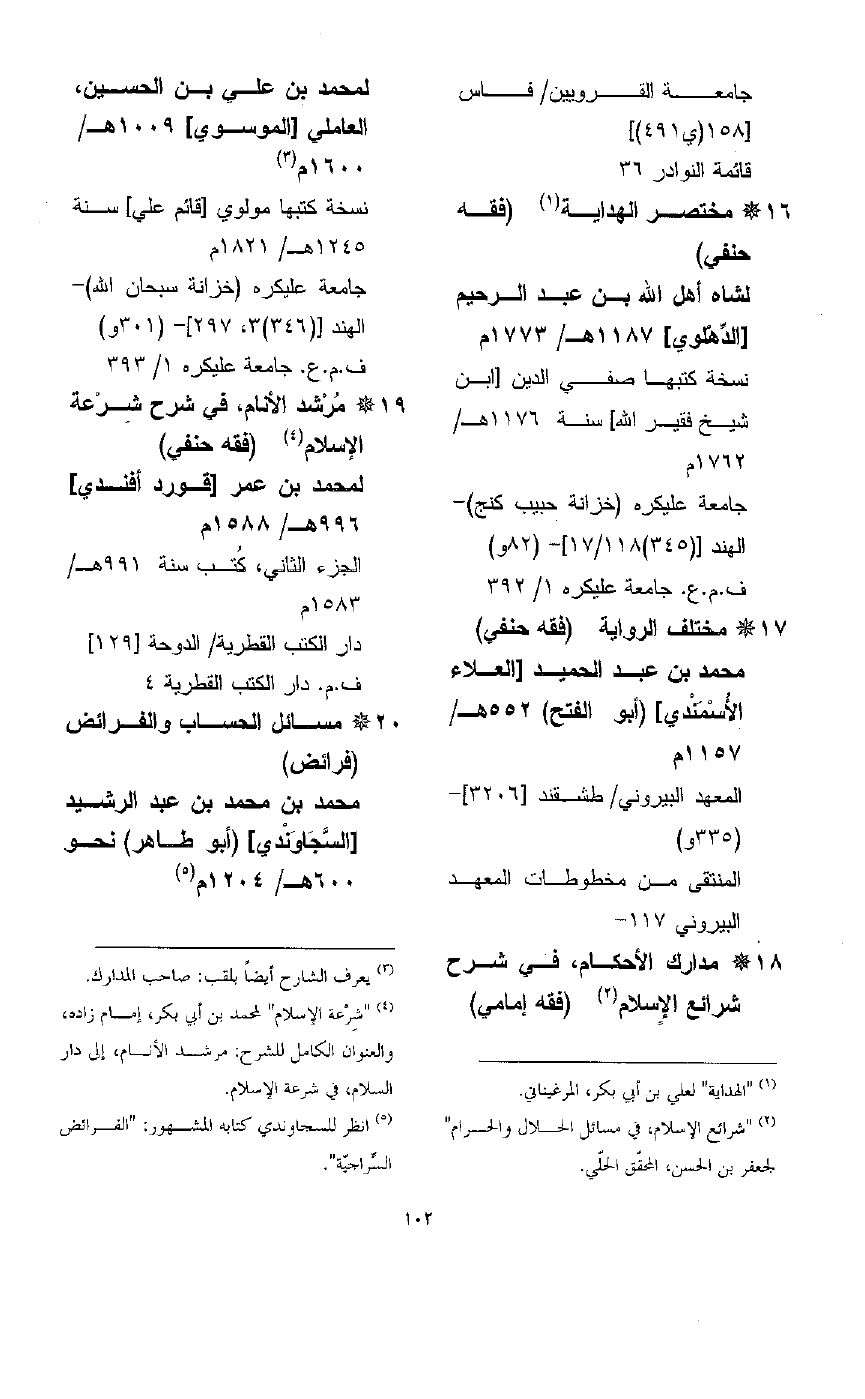 جامعة القرويين/ فاس
[١٥٨(ي٤٩١)]
قائمة النوادر ٣٦
١٦* مختصر الهداية(١) (فقه
حنفي)
لشاه أهل الله بن عبد الرحيم
[الدِّهْلوي] ١١٨٧هـ/ ١٧٧٣م
نسخة كتبها صفي الدين [ابن
شيخ فقير الله] سنة ١١٧٦هـ/
١٧٦٢م
جامعة عليكره (خزانة حبيب كنج)-
الهند [(٣٤٥)١٧/١١٨]- (٨٢و)
ف.م.ع. جامعة عليكره ١/ ٣٩٢
١٧* مختلف الرواية (فقه حنفي)
محمد بن عبد الحميد [العلاء
الأُسْمَنْدي] (أبو الفتح) ٥٥٢هـ/
١١٥٧م
المعهد البيروني/ طشقند [٣٢٠٦]-
(٣٣٥و)
المنتقى من مخطوطات المعهد
البيروني ١١٧-
١٨* مدارك الأحكام، في شرح
شرائع الإسلام(٢) (فقه إمامي)
(١) "الهداية" لعلي بن أبي بكر، المرغيناني.
(٢) "شرائع الإسلام، في مسائل الحلال والحرام"
لجعفر بن الحسن، المحقّق الحلّي.
لمحمد بن علي بن الحسين،
العاملي [الموسوي] ١٠٠٩هـ/
١٦٠٠م(٣)
نسخة كتبها مولوي [قائم علي] سنة
١٢٤٥هـ/ ١٨٢١م
جامعة عليكره (خزانة سبحان الله)-
الهند [(٣٤٦)٣، ٢٩٧]- (٣٠١و)
ف.م.ع. جامعة عليكره ١/ ٣٩٣
١٩* مُرْشد الأنام، في شرح شِرْعة
الإسلام(٤) (فقه حنفي)
لمحمد بن عمر [قورد أفندي]
٩٩٦هـ/ ١٥٨٨م
الجزء الثاني، كُتب سنة ٩٩١هـ/
١٥٨٣م
دار الكتب القطرية/ الدوحة [١٢٩]
ف.م. دار الكتب القطرية ٤
٢٠* مسائل الحساب والفرائض
(فرائض)
محمد بن محمد بن عبد الرشيد
[السَّجَاوَنْدي] (أبو طاهر) نحو
٦٠٠هـ/ ١٢٠٤م(٥)
(٣) يعرف الشارح أيضاً بلقب: صاحب المدارك.
(٤) "شِرْعة الإسلام" لمحمد بن أبي بكر، إمام زاده،
والعنوان الكامل للشرح: مرشد الأنام، إلى دار
السلام، في شرعة الإسلام.
(٥) انظر للسجاوندي كتابه المشهور: "الفرائض
السِّراجيّة".
١٠٢